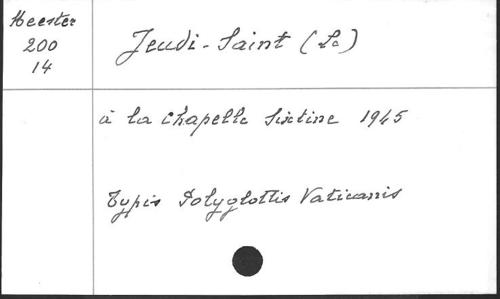 Heester
200
14
Jeudi-Saint (Le)
à la Chapelle Sixtine 1945
Typis Polyglottis Vaticanis